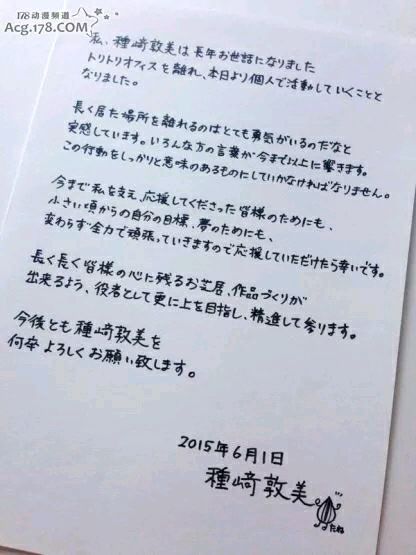 178动漫频道
Acg.178.COM
私、種﨑敦美は長年お世話になりました
トリトリオフィスを離れ、本日より個人で活動していくことと
なりました。
長く居た場所を離れるのはとても勇気がいるのだなと
実感しています。いろんな方の言葉が今まで以上に響きます。
この行動をしっかりと意味のあるものにしていかなければなりません。
今まで私を支え、応援してくださった皆様のためにも、
小さい頃からの自分の目標、夢のためにも、
変わらず全力で頑張っていきますので応援していただけたら幸いです。
長く長く皆様の心に残るお芝居、作品づくりが
出来るよう、役者として更に上を目指し、精進して参ります。
今後とも種﨑敦美を
何卒よろしくお願い致します。
2015年6月1日
種﨑敦美
たね